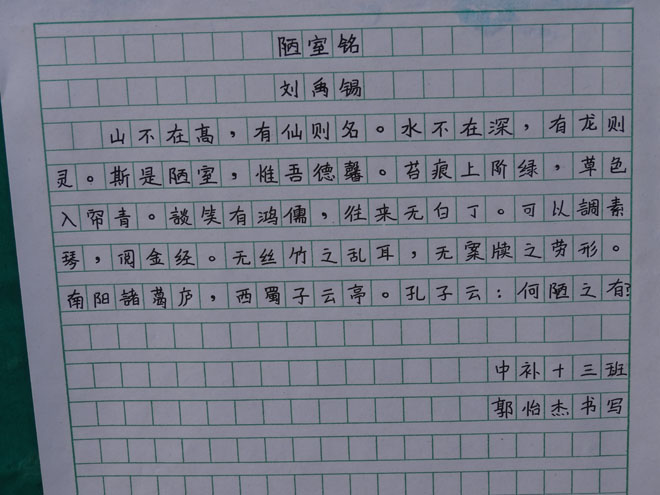 陋室铭
刘禹锡
山不在高，有仙则名。水不在深，有龙则
灵。斯是陋室，惟吾德馨。苔痕上阶绿，草色
入帘青。談笑有鸿儒，往来无白丁。可以調素
琴，阅金经。无丝竹之乱耳，无案牍之劳形。
南阳諸葛庐，西蜀子云亭。孔子云：何陋之有？
中补十三班
郭怡杰书写